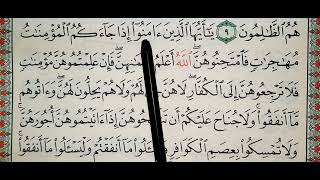 هُمُ ٱلظَّٰلِمُونَ ٩ يَٰٓأَيُّهَا ٱلَّذِينَ ءَامَنُوٓا۟ إِذَا جَآءَكُمُ ٱلْمُؤْمِنَٰتُ
مُهَٰجِرَٰتٍ فَٱمْتَحِنُوهُنَّ ۖ ٱللَّهُ أَعْلَمُ فَإِنْ عَلِمْتُمُوهُنَّ مُؤْمِنَٰتٍ
فَلَا تَرْجِعُوهُنَّ إِلَى ٱلْكُفَّارِ ۖ لَا هُنَّ وَلَا هُمْ يَحِلُّونَ لَهُنَّ ۖ وَءَاتُوهُم
مَّآ أَنفَقُوا۟ ۚ وَلَا جُنَاحَ عَلَيْكُمْ أَن إِذَآ ءَاتَيْتُمُوهُنَّ أُجُورَهُنَّ ۚ
وَلَا تُمْسِكُوا۟ بِعِصَمِ ٱلْكَوَافِرِ مَآ أَنفَقْتُمْ وَلْيَسْـَٔلُوا۟ مَآ أَنفَقُوا۟ ۚ